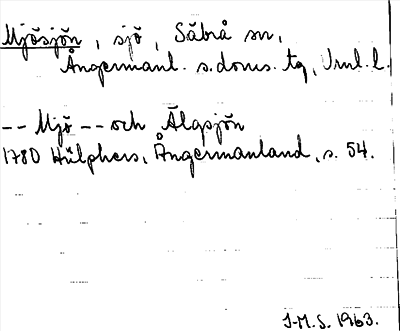 Mjösjön, sjö, Säbrå sn,
Ångermanl. s. doms. tg, Vnl. l.
-- Mjö -- och Älgsjön
1780 Hülphers, Ångermanland, s. 54.
J-M.S. 1963.